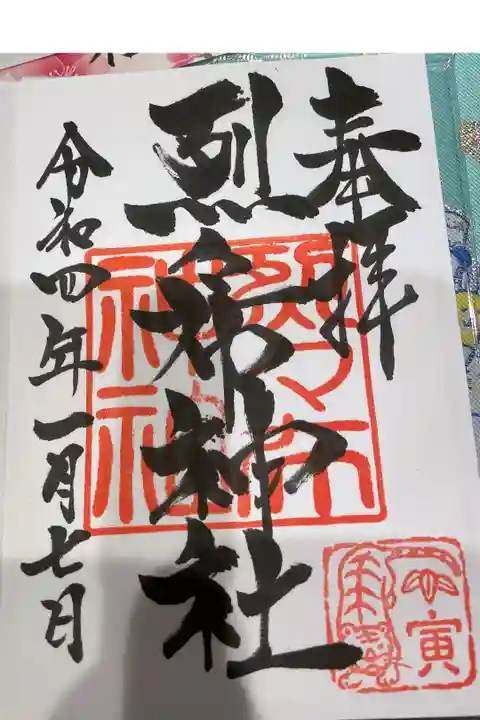 奉拝
烈々布神社
令和四年一月七日
烈々布
神社
寅